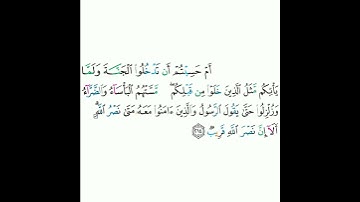 أَمْ حَسِبْتُمْ أَن تَدْخُلُوا۟ الْجَنَّةَ وَلَمَّا
يَأْتِكُم مَّثَلُ الَّذِينَ خَلَوْا۟ مِن قَبْلِكُم ۖ مَّسَّتْهُمُ الْبَأْسَآءُ وَالضَّرَّآءُ
وَزُلْزِلُوا۟ حَتَّىٰ يَقُولَ الرَّسُولُ وَالَّذِينَ ءَامَنُوا۟ مَعَهُۥ مَتَىٰ نَصْرُ اللَّهِ ۗ
أَلَآ إِنَّ نَصْرَ اللَّهِ قَرِيبٌ ۝٢١٤